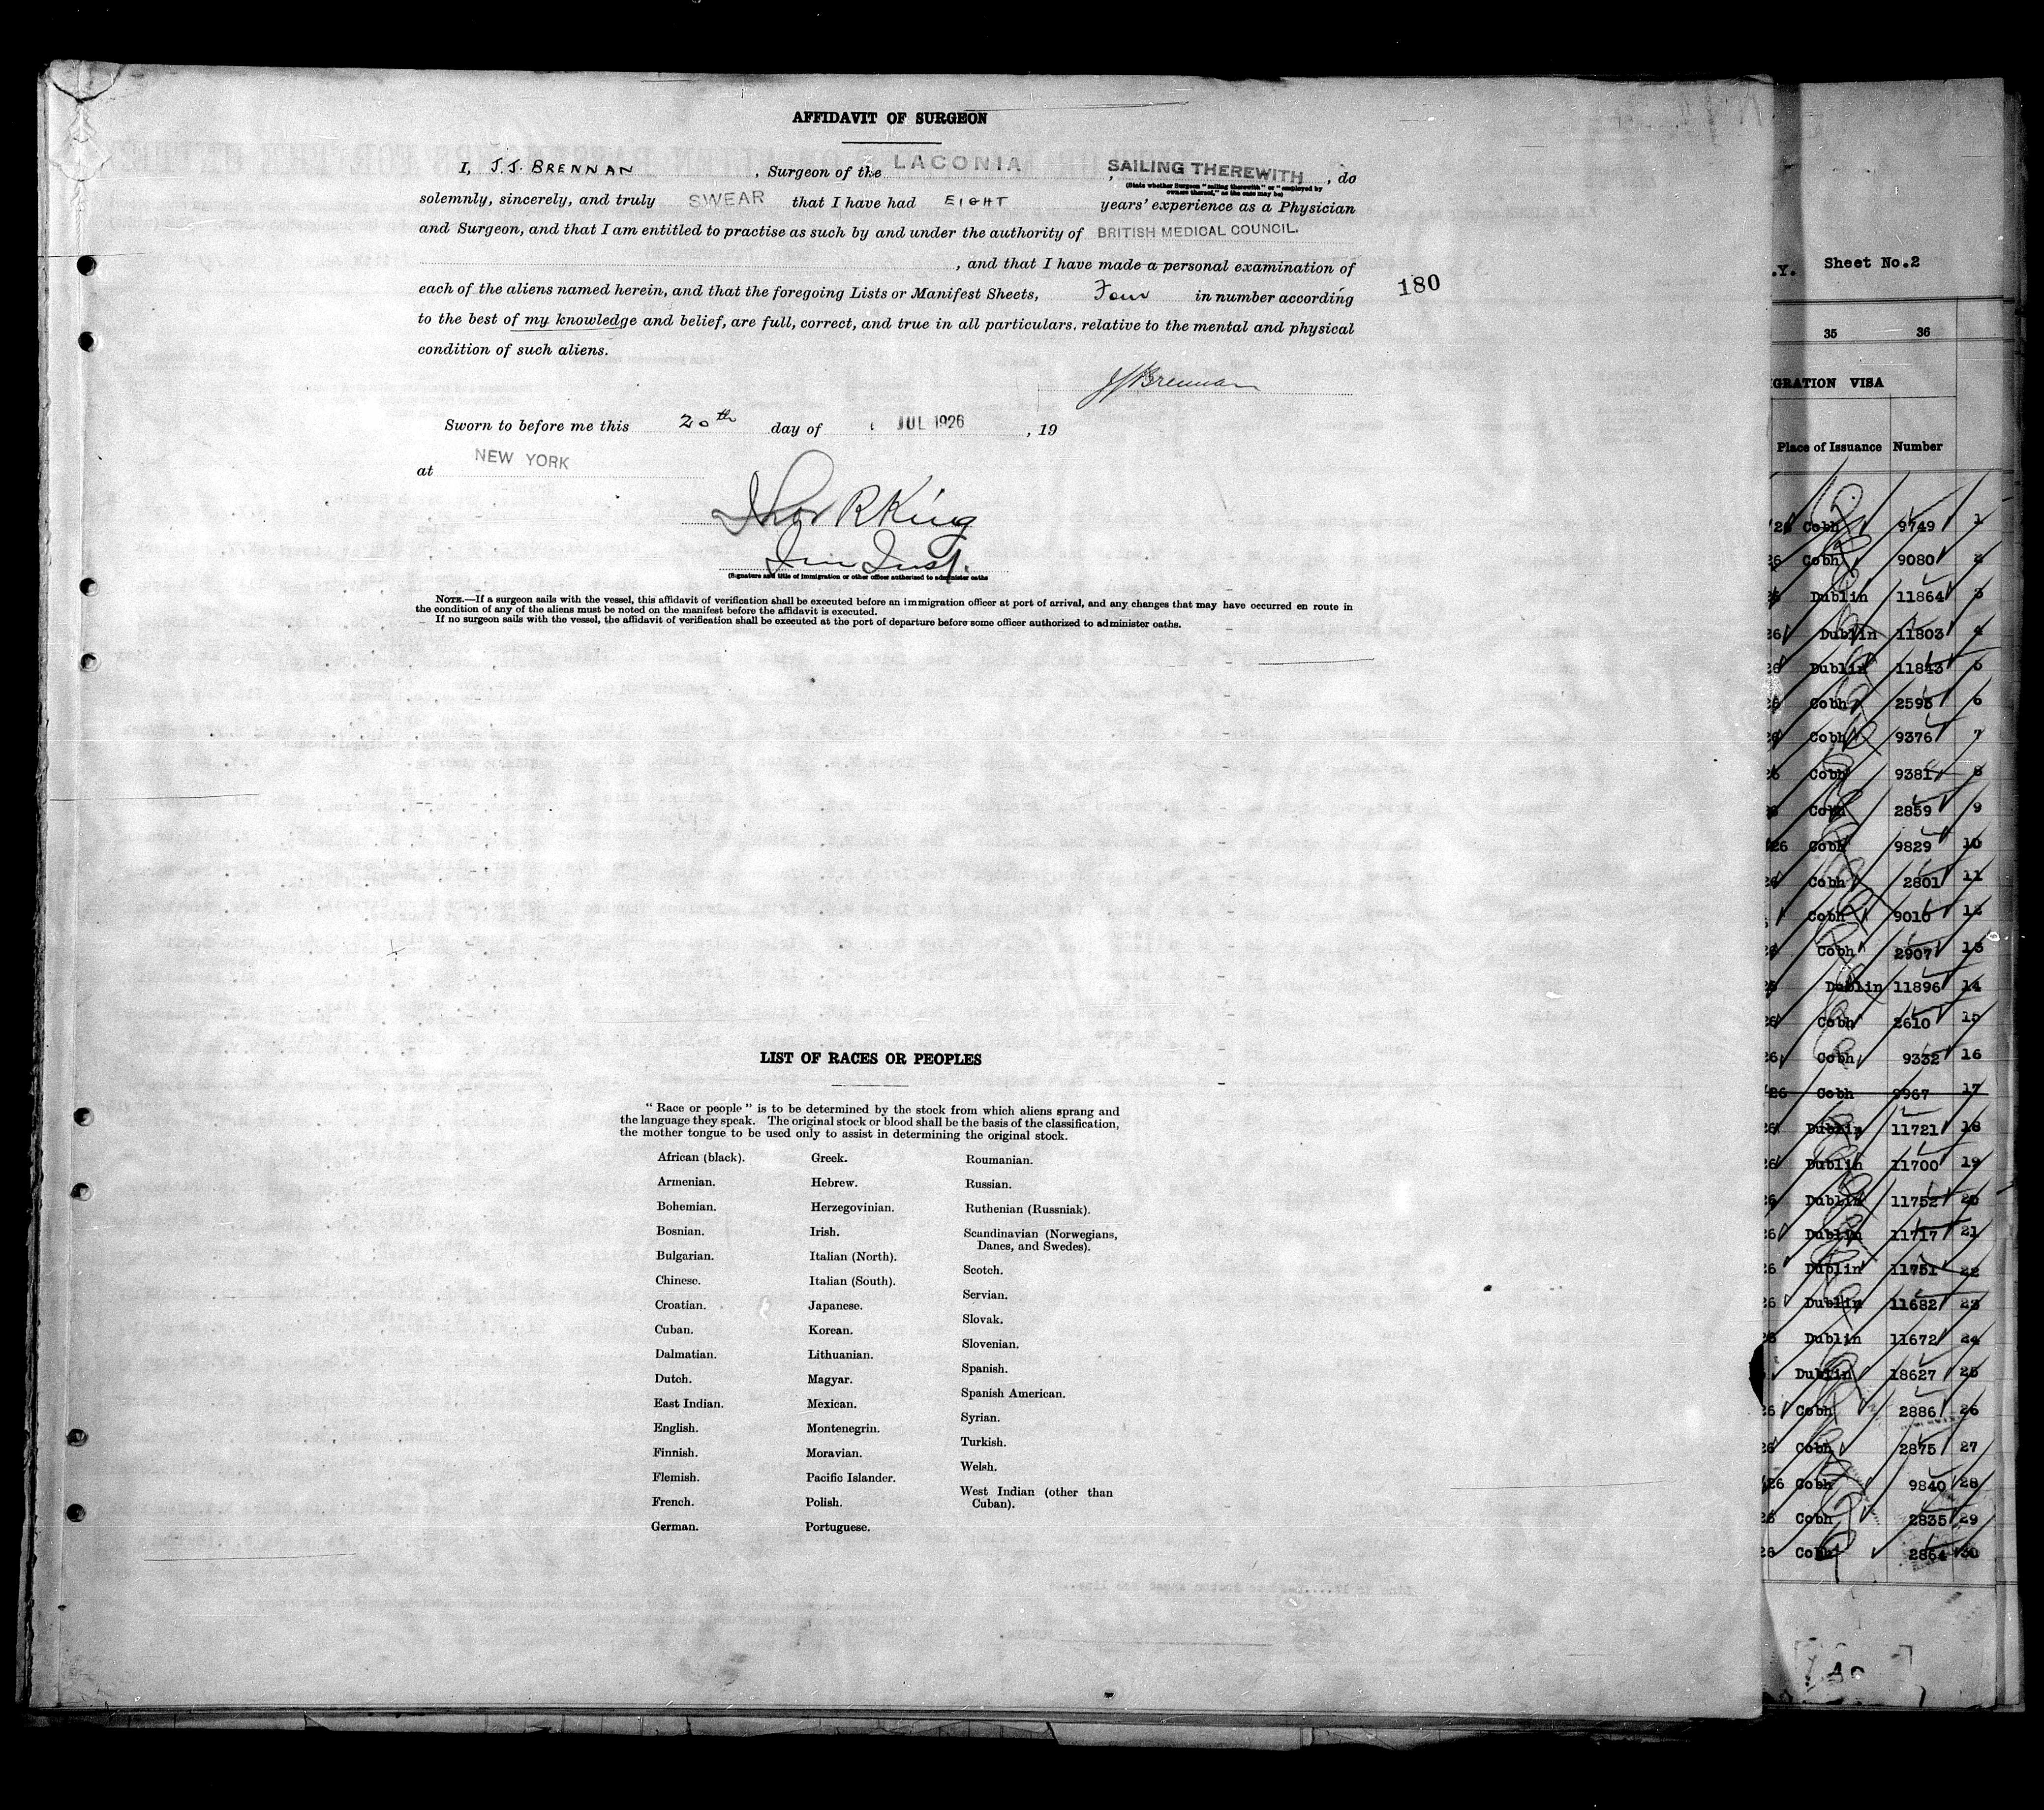 AFFIDAVIT OF SURGEON
I, J.J. BRENNAN , Surgeon of the LACONIA SAILING THEREWITH , do
(State whether Surgeon "sailing therewith" or "employed by
owners thereof," as the case may be)
solemnly, sincerely, and truly SWEAR that I have had EIGHT years' experience as a Physician
and Surgeon, and that I am entitled to practise as such by and under the authority of BRITISH MEDICAL COUNCIL.
, and that I have made a personal examination of
each of the aliens named herein, and that the foregoing Lists or Manifest Sheets, Four in number according
180
to the best of my knowledge and belief, are full, correct, and true in all particulars, relative to the mental and physical
condition of such aliens.
JJBrennan
Sworn to before me this 20th day of JUL 1926 , 19
at NEW YORK
R King
Imm Insp.
(Signature and title of immigration or other officer authorized to administer oaths
NOTE.—If a surgeon sails with the vessel, this affidavit of verification shall be executed before an immigration officer at port of arrival, and any changes that may have occurred en route in
the condition of any of the aliens must be noted on the manifest before the affidavit is executed.
If no surgeon sails with the vessel, the affidavit of verification shall be executed at the port of departure before some officer authorized to administer oaths.
LIST OF RACES OR PEOPLES
"Race or people" is to be determined by the stock from which aliens sprang and
the language they speak. The original stock or blood shall be the basis of the classification,
the mother tongue to be used only to assist in determining the original stock.
African (black).
Armenian.
Bohemian.
Bosnian.
Bulgarian.
Chinese.
Croatian.
Cuban.
Dalmatian.
Dutch.
East Indian.
English.
Finnish.
Flemish.
French.
German.
Greek.
Hebrew.
Herzegovinian.
Irish.
Italian (North).
Italian (South).
Japanese.
Korean.
Lithuanian.
Magyar.
Mexican.
Montenegrin.
Moravian.
Pacific Islander.
Polish.
Portuguese.
Roumanian.
Russian.
Ruthenian (Russniak).
Scandinavian (Norwegians,
Danes, and Swedes).
Scotch.
Servian.
Slovak.
Slovenian.
Spanish.
Spanish American.
Syrian.
Turkish.
Welsh.
West Indian (other than
Cuban).
.Y. Sheet No.2
35 36
IGRATION VISA
Place of Issuance Number
26 Cobh 9749 1
26 Cobh 9080 2
26 Dublin 11864 3
26 Dublin 11803 4
26 Dublin 11843 5
26 Cobh 2593 6
26 Cobh 9376 7
26 Cobh 9381 8
26 Cobh 2859 9
26 Cobh 9829 10
26 Cobh 2801 11
Cobh 9010 12
26 Cobh 2907 13
26 Dublin 11896 14
26 Cobh 2610 15
26 Cobh 9332 16
26 Cobh 9967 17
26 Dublin 11721 18
26 Dublin 11700 19
26 Dublin 11752 20
26 Dublin 11717 21
26 Dublin 11751 22
26 Dublin 11682 23
26 Dublin 11672 24
Dublin 18627 25
26 Cobh 2886 26
26 Cobh 2875 27
26 Cobh 9840 28
26 Cobh 2835 29
26 Cobh 2864 30